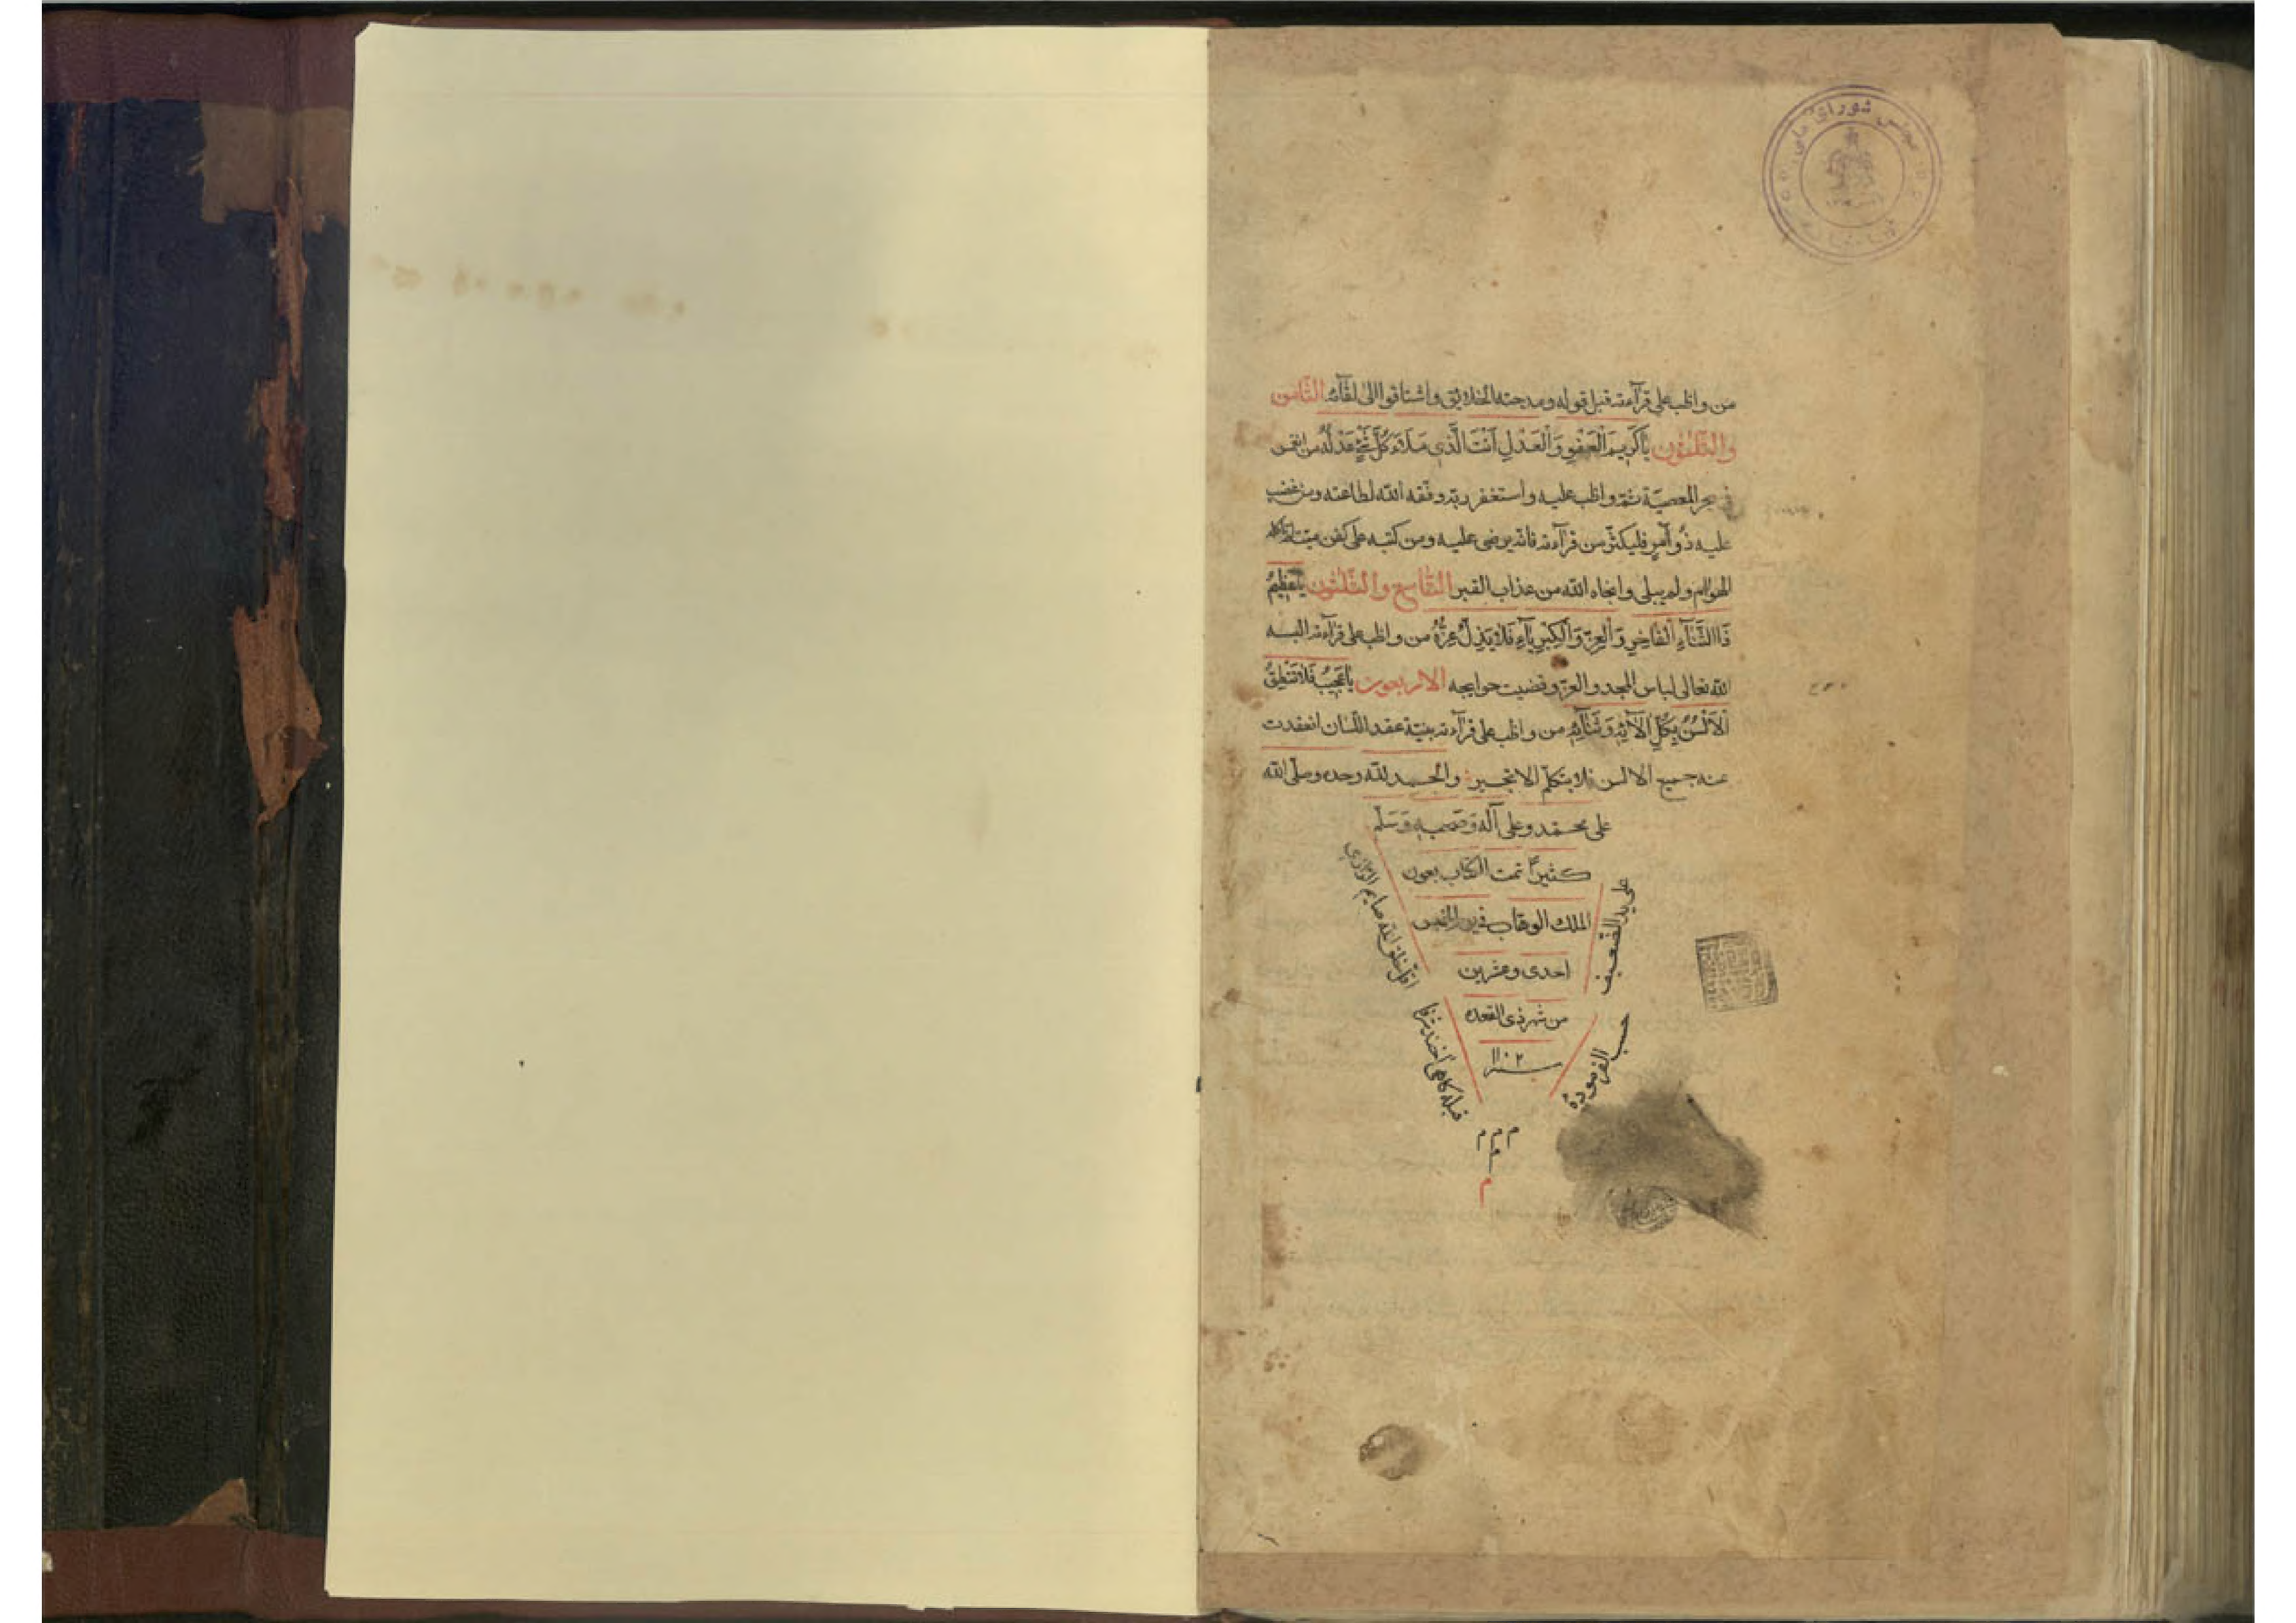 مجلس شورای ملی
من واظب على قرآءته قبل قوله ومدحته الخلايق واشتاقوا الى لقآئه الثّامن
والثّلثون يَا كَرِيمَ الْعَفْوِ وَالْعَدْلِ أَنْتَ الَّذِي مَلَاءَ كُلَّ شَيْءٍ عَدْلُهُ من انغمس
في بحر المعصيّة ثمّ واظب عليه واستغفر ربّه وفقه اللّه لطاعته ومن غضب
عليه ذُو أمرٍ فليكثر من قرآءته فانّه يرضى عليه ومن كتبه على كفن ميّت
الهوام ولم يبلى وانجاه اللّه من عذاب القبر التّاسع والثّلثون يَا عَظِيمُ
ذَا الثَّنَآءِ الْفَاخِرِ وَالْعِزِّ وَالْكِبْرِيَآءِ فَلَا يَذِلُّ عِزُّهُ من واظب على قرآءته البسه
اللّه تعالى لباس المجد والعزّ وقضيت حوايجه الاربعون يَا عَجِيبُ فَلَا تَنْطِقُ
الْأَلْسُنُ بِكُلِّ آلَائِهِ وَثَنَآئِهِ من واظب على قرآءته بنيّة عقد اللّسان انعقدت
عنه جميع الالسن فلا يتكلّم الا بخير والحمد للّه وحده وصلّى اللّه
على محمّد وعلى آله وَصَحبِهِ وَسَلّم
كثيرًا تمت الكتاب بعون
الملك الوهّاب في يوم الخميس
احدى وعشرين
من شهر ذى القعده
سنه ١١٠٢
على يد الضّعيف
اقلّ خلق اللّه صايم الرّازي
حسب الفرموده
قبله كاهى
م م م
م
م